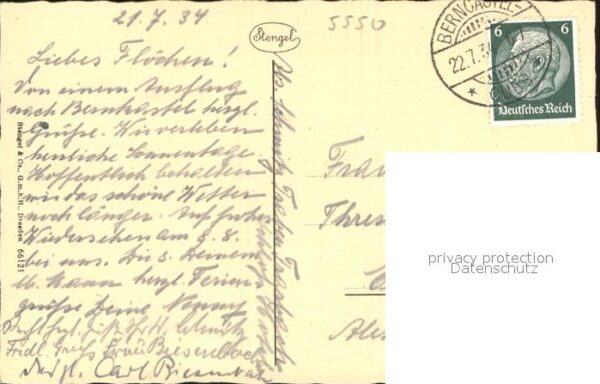 21.7.34
5550
Stengel
BERNCASTEL-
22.7.3
6 6
Deutsches Reich
Liebes Flöchen!
Von einem Ausflug
nach Bernkastel herzl.
Grüße. Wir verleben
herrliche Sonnentage
Hoffentlich behalten
wir das schöne Wetter
noch länger. Auf frohes
Wiedersehen am 9.8.
bei uns. Dir u. Deinem
lb. Mann herzl. Ferien
grüße Deine
Recht herzl.
Frdl. Gruß Frau Biesenbach
Carl Biesenbach
Schmitz Traben Trarbach
Stengel & Co., G.m.b.H., Dresden 66121
Frau
Thres
Ales
privacy protection
Datenschutz